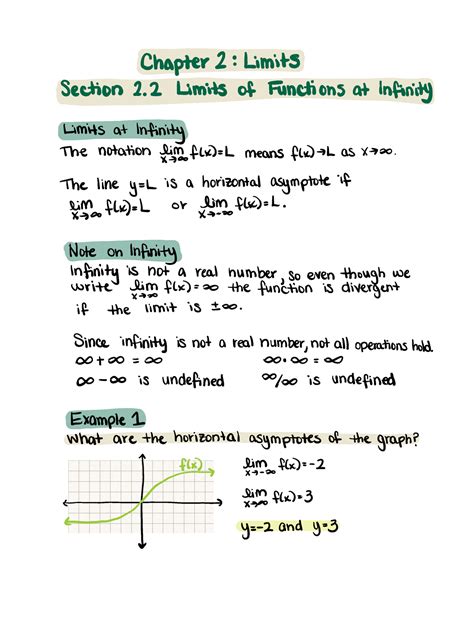 Chapter 2: Limits
Section 2.2 Limits of Functions at Infinity
Limits at Infinity
The notation lim x→∞ f(x)=L means f(x)→L as x→∞.
The line y=L is a horizontal asymptote if
lim x→∞ f(x)=L or lim x→-∞ f(x)=L.
Note on Infinity
Infinity is not a real number, so even though we
write lim x→∞ f(x)=∞ the function is divergent
if the limit is ±∞.
Since infinity is not a real number, not all operations hold.
∞+∞ = ∞ ∞·∞ = ∞
∞-∞ is undefined ∞/∞ is undefined
Example 1
What are the horizontal asymptotes of the graph?
f(x)
lim x→-∞ f(x)=-2
lim x→∞ f(x)=3
y=-2 and y=3